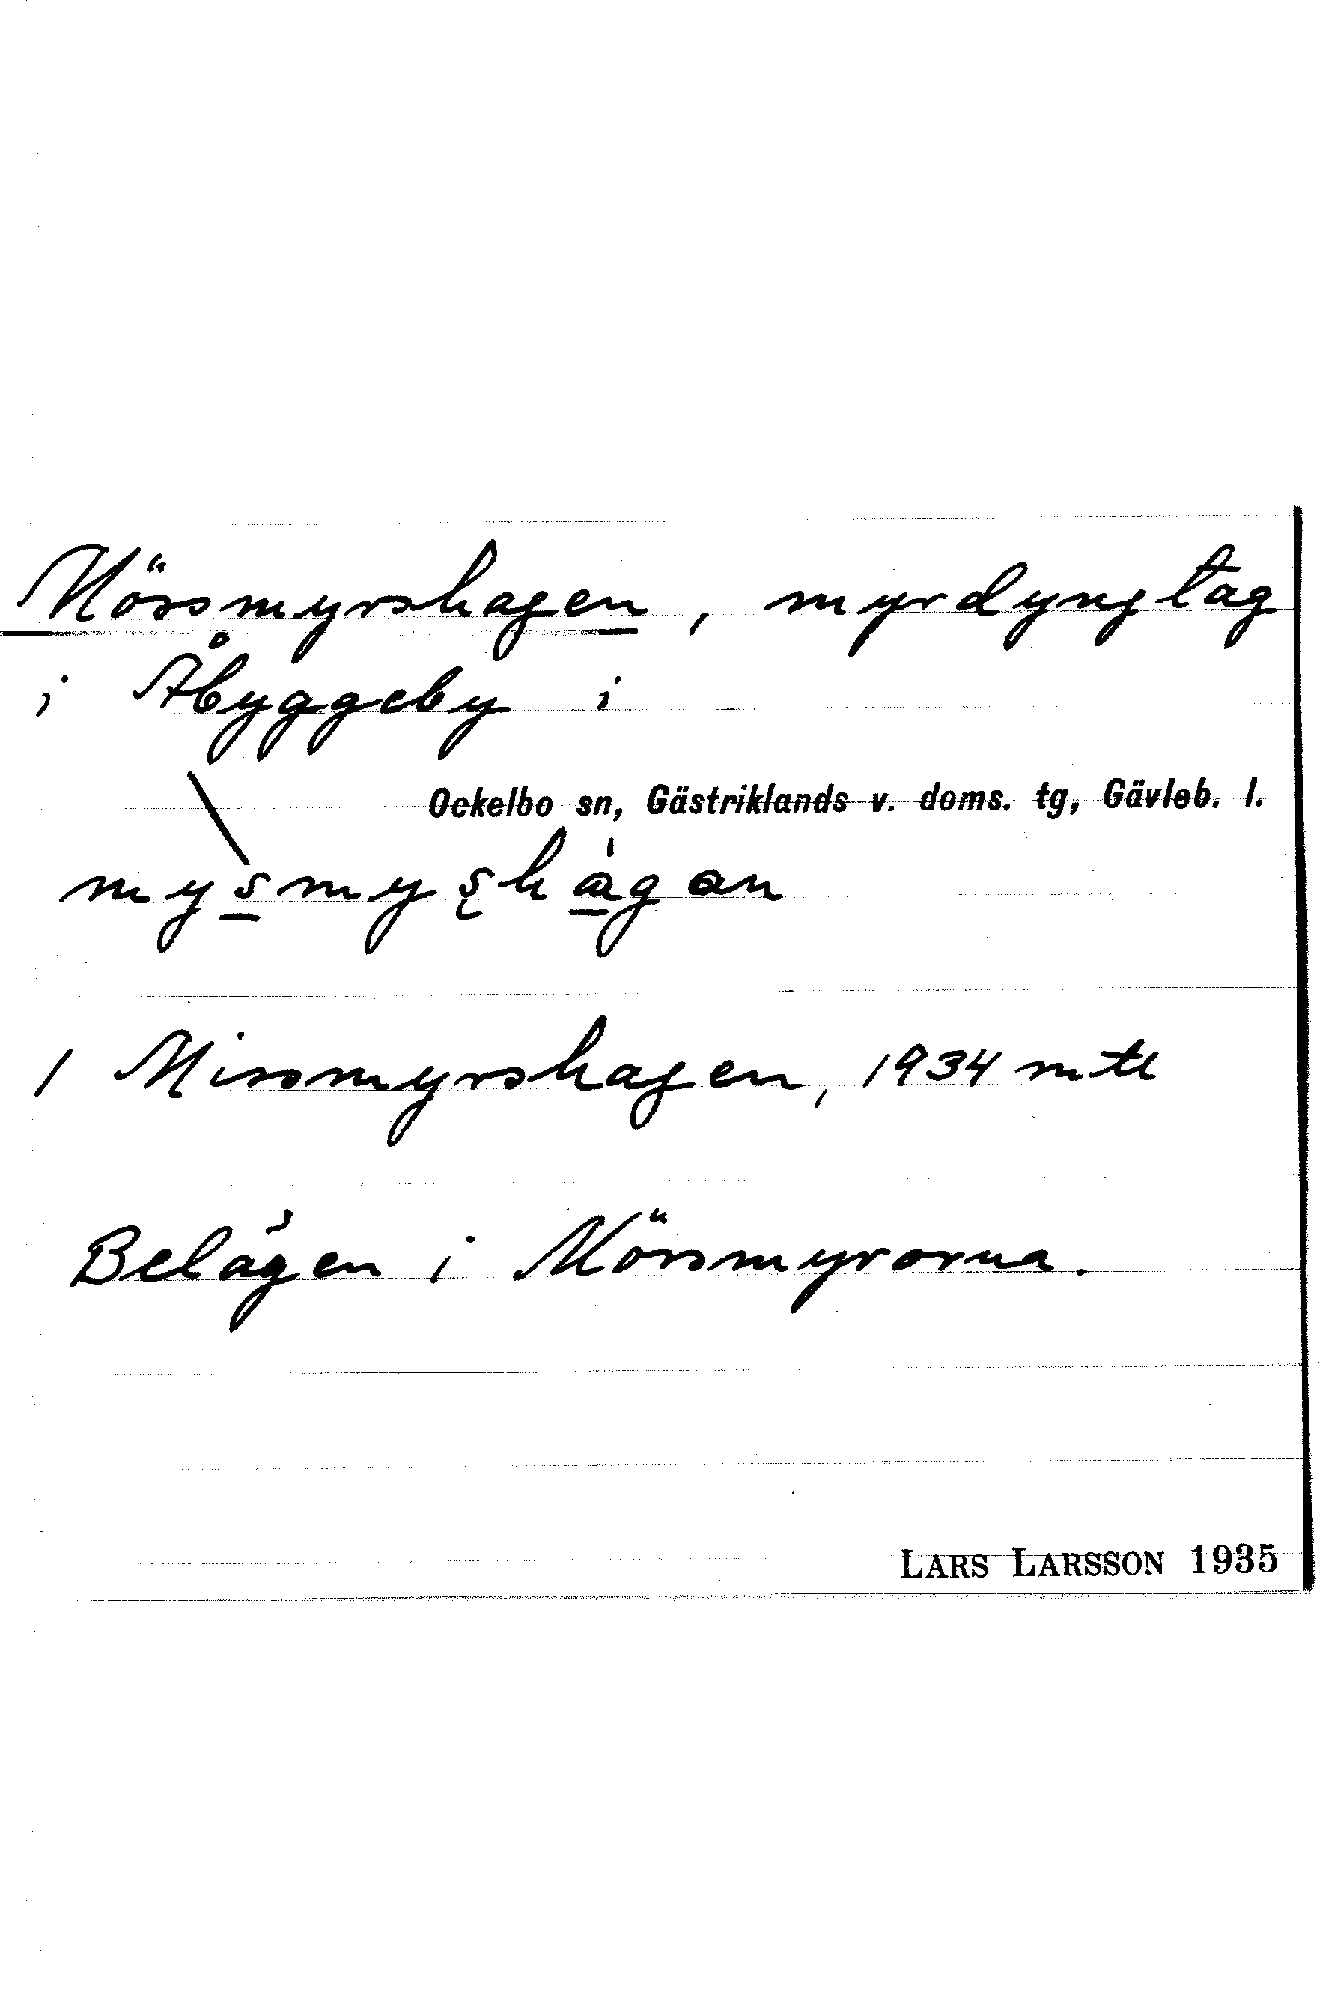 Mössmyrshagen, myrdyngtag
i Åbyggeby i
Ockelbo sn, Gästriklands v. doms. tg, Gävleb. l.
mysmyshàgan
/ Missmyrshagen, 1934 mtl
Belägen i Mössmyrorna.
LARS LARSSON 1935